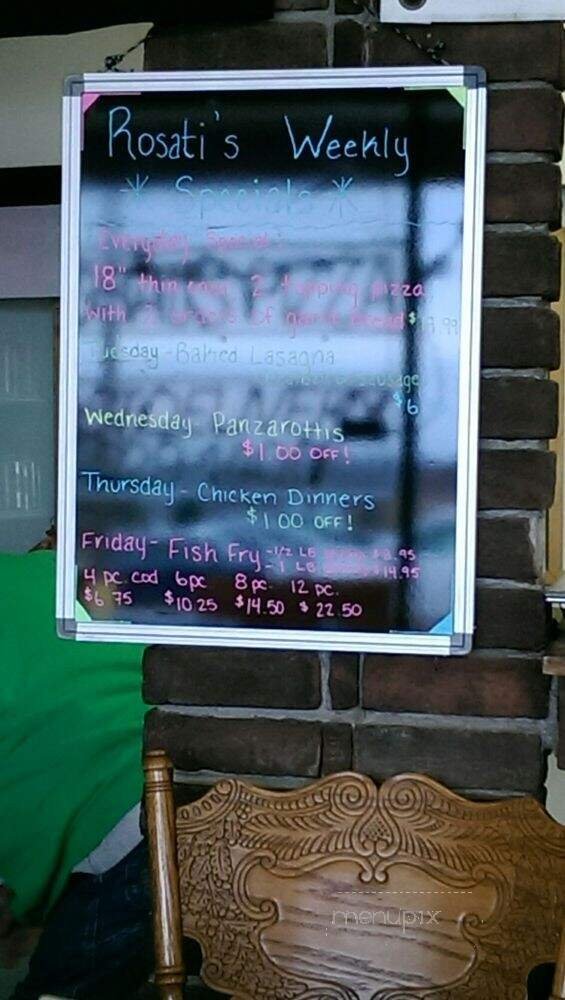 Rosati's Weekly
* Specials *
Everyday Special:
18" thin 2 topping pizza
with 2 orders of garlic bread $
Tuesday - Baked Lasagna
sausage
$6
Wednesday - Panzarottis
$1.00 OFF!
Thursday - Chicken Dinners
$1.00 OFF!
Friday - Fish Fry - 1/2 LB
- 1 LB $14.95
4 pc. cod 6pc 8 pc. 12 pc.
$6.75 $10.25 $14.50 $22.50
menupix